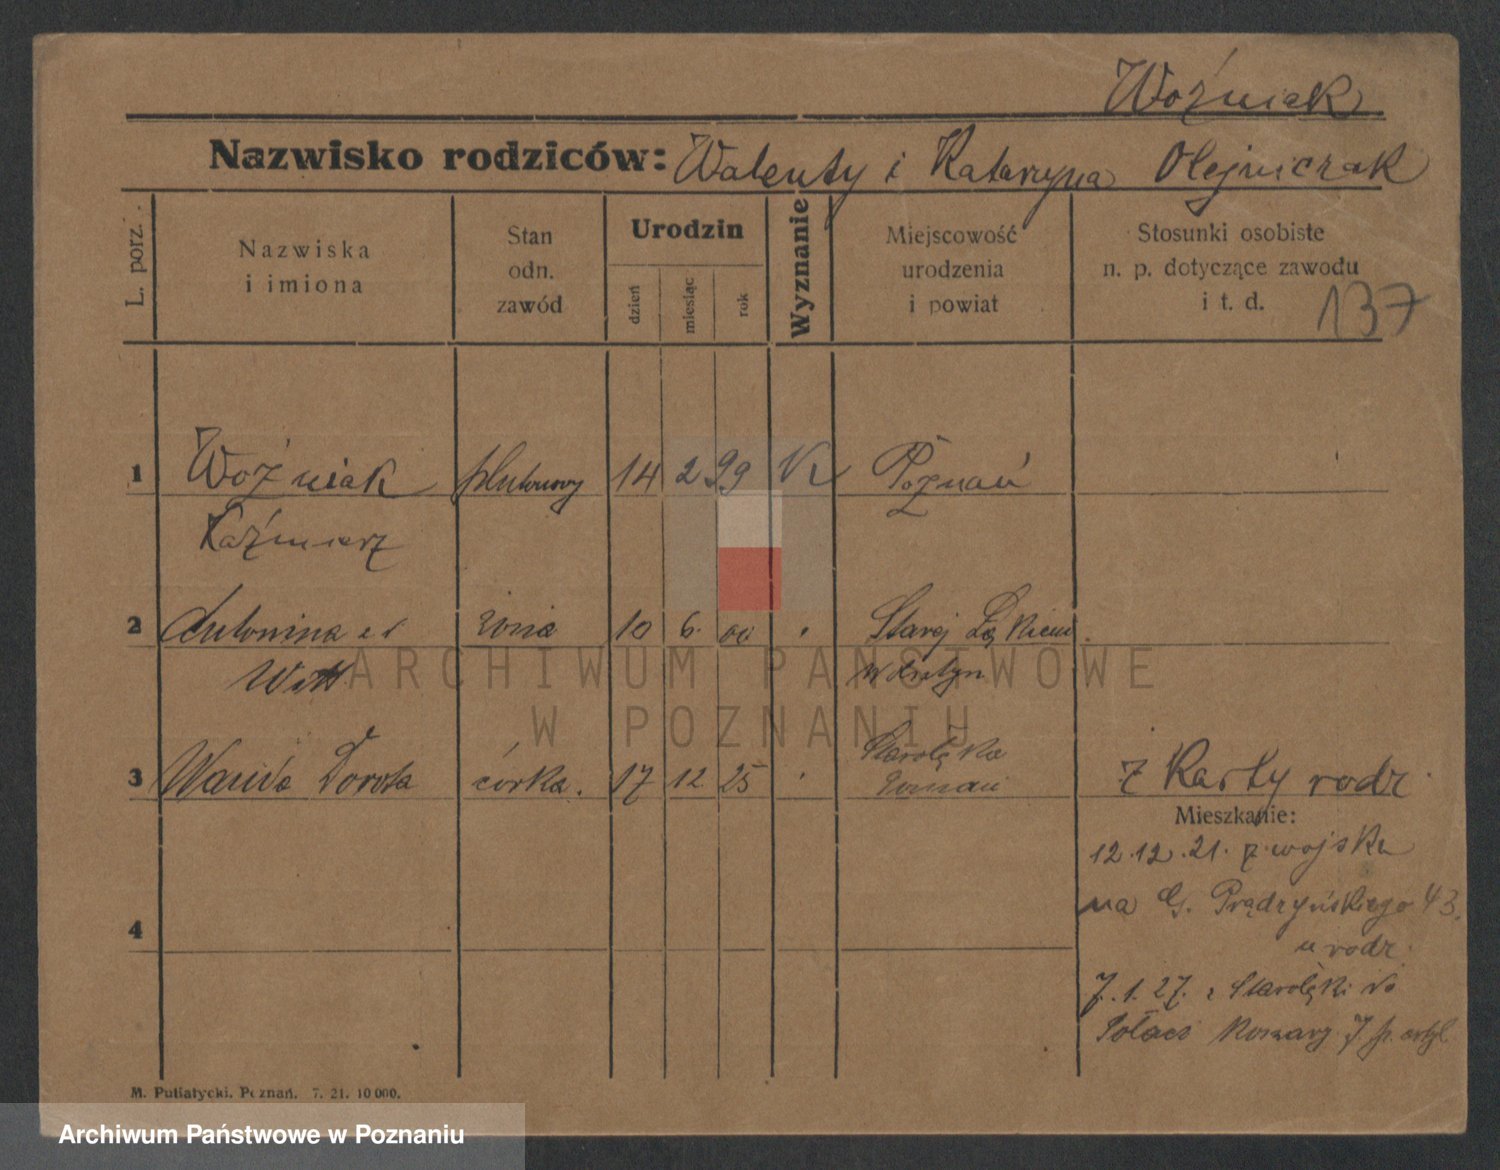 Woźniak
Nazwisko rodziców: Walenty i Katarzyna Olejniczak
L. porz.
Nazwiska
i imiona
Stan
odn.
zawód
Urodzin
dzień
miesiąc
rok
Wyznanie
Miejscowość
urodzenia
i powiat
Stosunki osobiste
n. p. dotyczące zawodu
i t. d.
137
1 Woźniak plutonowy 14 2 99 K Poznań
Kaźmierz
2 Antonina żona 10 6. 00 Starej
Witt
3 Wanda Dorota córka. 17 12 25 Starołęka
Poznań
z Karty rodz.
Mieszkanie:
12.12.21. z wojska
na G. Prądzyńskiego 43.
u rodz.
7.1.27. z Starołęki do
Koszary 7 p. artyl
4
M. Putiatycki. Poznań. 7. 21. 10 000.
ARCHIWUM PAŃSTWOWE
W POZNANIU
Archiwum Państwowe w Poznaniu